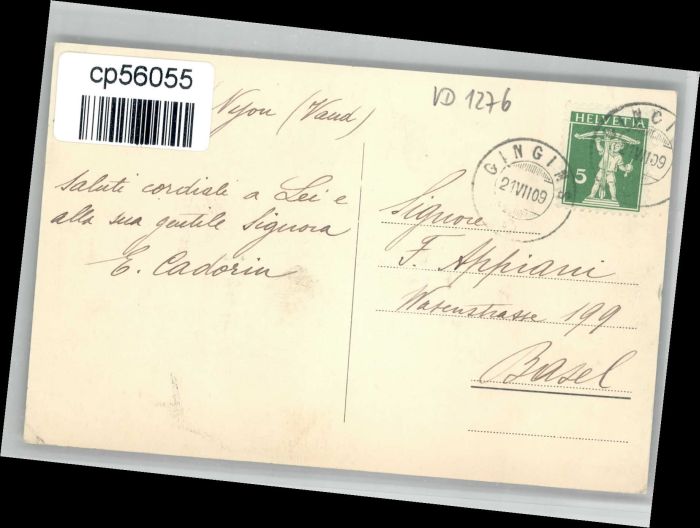 cp56055
Nyon (Vaud)
VD 1276
saluti cordiali a Lei e
alla sua gentile Signora
E. Cadorin
GINGINS
21 VII 09
HELVETIA
5
GINGINS
VII 09
Signore
F. Appiani
Wasenstrasse 199
Basel